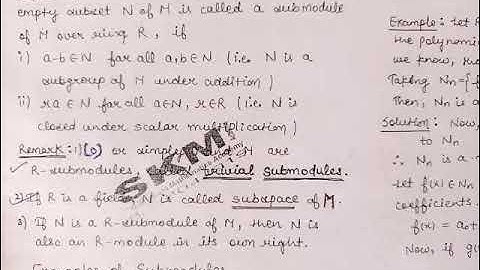 empty subset N of M is called a submodule
of M over ring R, if
i) a-b∈N for all a,b∈N (i.e. N is a
subgroup of M under addition)
ii) ra∈N for all a∈N, r∈R (i.e. N is
closed under scalar multiplication)
Remark: 1) {0} or simply and M are
R-submodules, trivial submodules.
2) If R is a field, N is called subspace of M.
3) If N is a R-submodule of M, then N is
also an R-module in its own right.
Examples of Submodules
SKM
Academy
Example: Let R
the polynomi
we know, tha
Taking Nn={f
Then, Nn is a
Solution: Now,
to Nn
∴ Nn is a
Let f(x)∈Nn
coefficients.
f(x) = a0+
Now, if g(